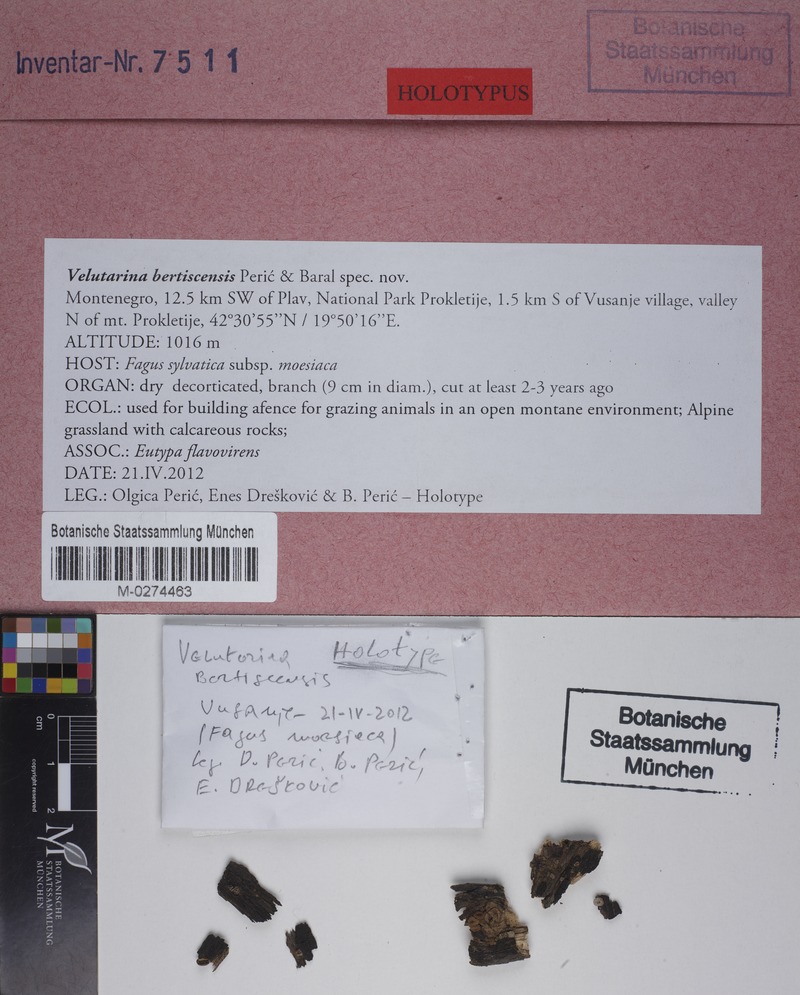 Inventar-Nr. 7511
Botanische
Staatssammlung
München
HOLOTYPUS
Velutarina bertiscensis Perić & Baral spec. nov.
Montenegro, 12.5 km SW of Plav, National Park Prokletije, 1.5 km S of Vusanje village, valley
N of mt. Prokletije, 42°30’55’’N / 19°50’16’’E.
ALTITUDE: 1016 m
HOST: Fagus sylvatica subsp. moesiaca
ORGAN: dry decorticated, branch (9 cm in diam.), cut at least 2-3 years ago
ECOL.: used for building afence for grazing animals in an open montane environment; Alpine
grassland with calcareous rocks;
ASSOC.: Eutypa flavovirens
DATE: 21.IV.2012
LEG.: Olgica Perić, Enes Drešković & B. Perić – Holotype
Botanische Staatssammlung München
M-0274463
Velutarina Holotype
Bertiscensis
Vusanje - 21-IV-2012
(Fagus moesiaca)
leg. O. Perić, B. Perić,
E. Drešković
Botanische
Staatssammlung
München
0 1 2
cm
copyright reserved
M
BOTANISCHE
STAATSSAMMLUNG
MÜNCHEN